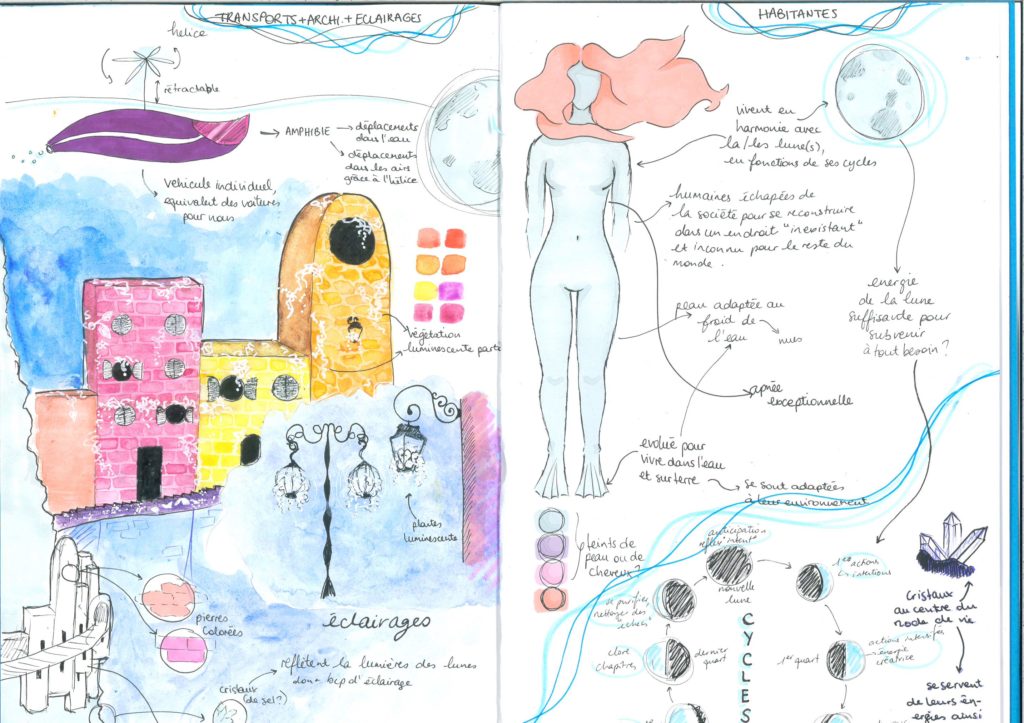 TRANSPORTS + ARCHI. + ECLAIRAGES
helice
rétractable
AMPHIBIE
déplacements
dans l'eau
déplacements
dans les airs
grâce à l'hélice
vehicule individuel,
equivalent des voitures
pour nous
végétation
luminescente parto
plantes
luminescente
éclairages
pierres
colorées
reflètent la lumières des lunes
donc bcp d'éclairage
cristaux
(de sel?)
HABITANTES
vivent en
harmonie avec
la/les lune(s),
en fonctions de ses cycles
humaines échapées de
la société pour se reconstruire
dans un endroit "inexistant"
et inconnu pour le reste du
monde.
energie
de la lune
suffisante pour
subvenir
à tout besoin?
peau adaptée au
froid de
l'eau
apnée
exceptionnelle
evolué pour
vivre dans l'eau
et sur terre
se sont adaptées
à leur environnement
teints de
peau ou de
cheveux?
anticipation
nouvelle
lune
1eres actions
intentions
se purifier
nettoyer des
"échecs"
clore
chapitres
dernier
quart
CYCLES
1er quart
actions intensifiées
énergie
créatrice
cristaux
au centre du
mode de vie
se servent
de leurs én-
ergies ainsi